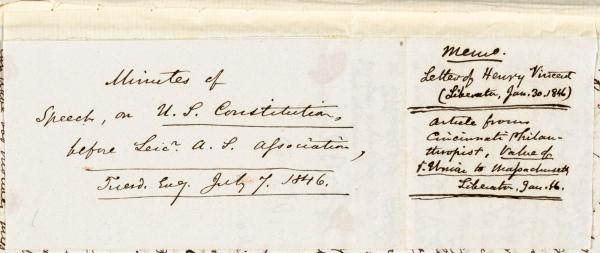 Minutes of
Speech, on U.S. Constitution,
before Leicr. A. S. Association,
Tuesd. Evg. July 7. 1846.
Memo.
Letter of Henry Vincent
(Liberator, Jan. 30. 1846)
Article from
Cincinnati Philan-
thropist, Value of
Union to Massachusetts
Liberator, Jan. 16.